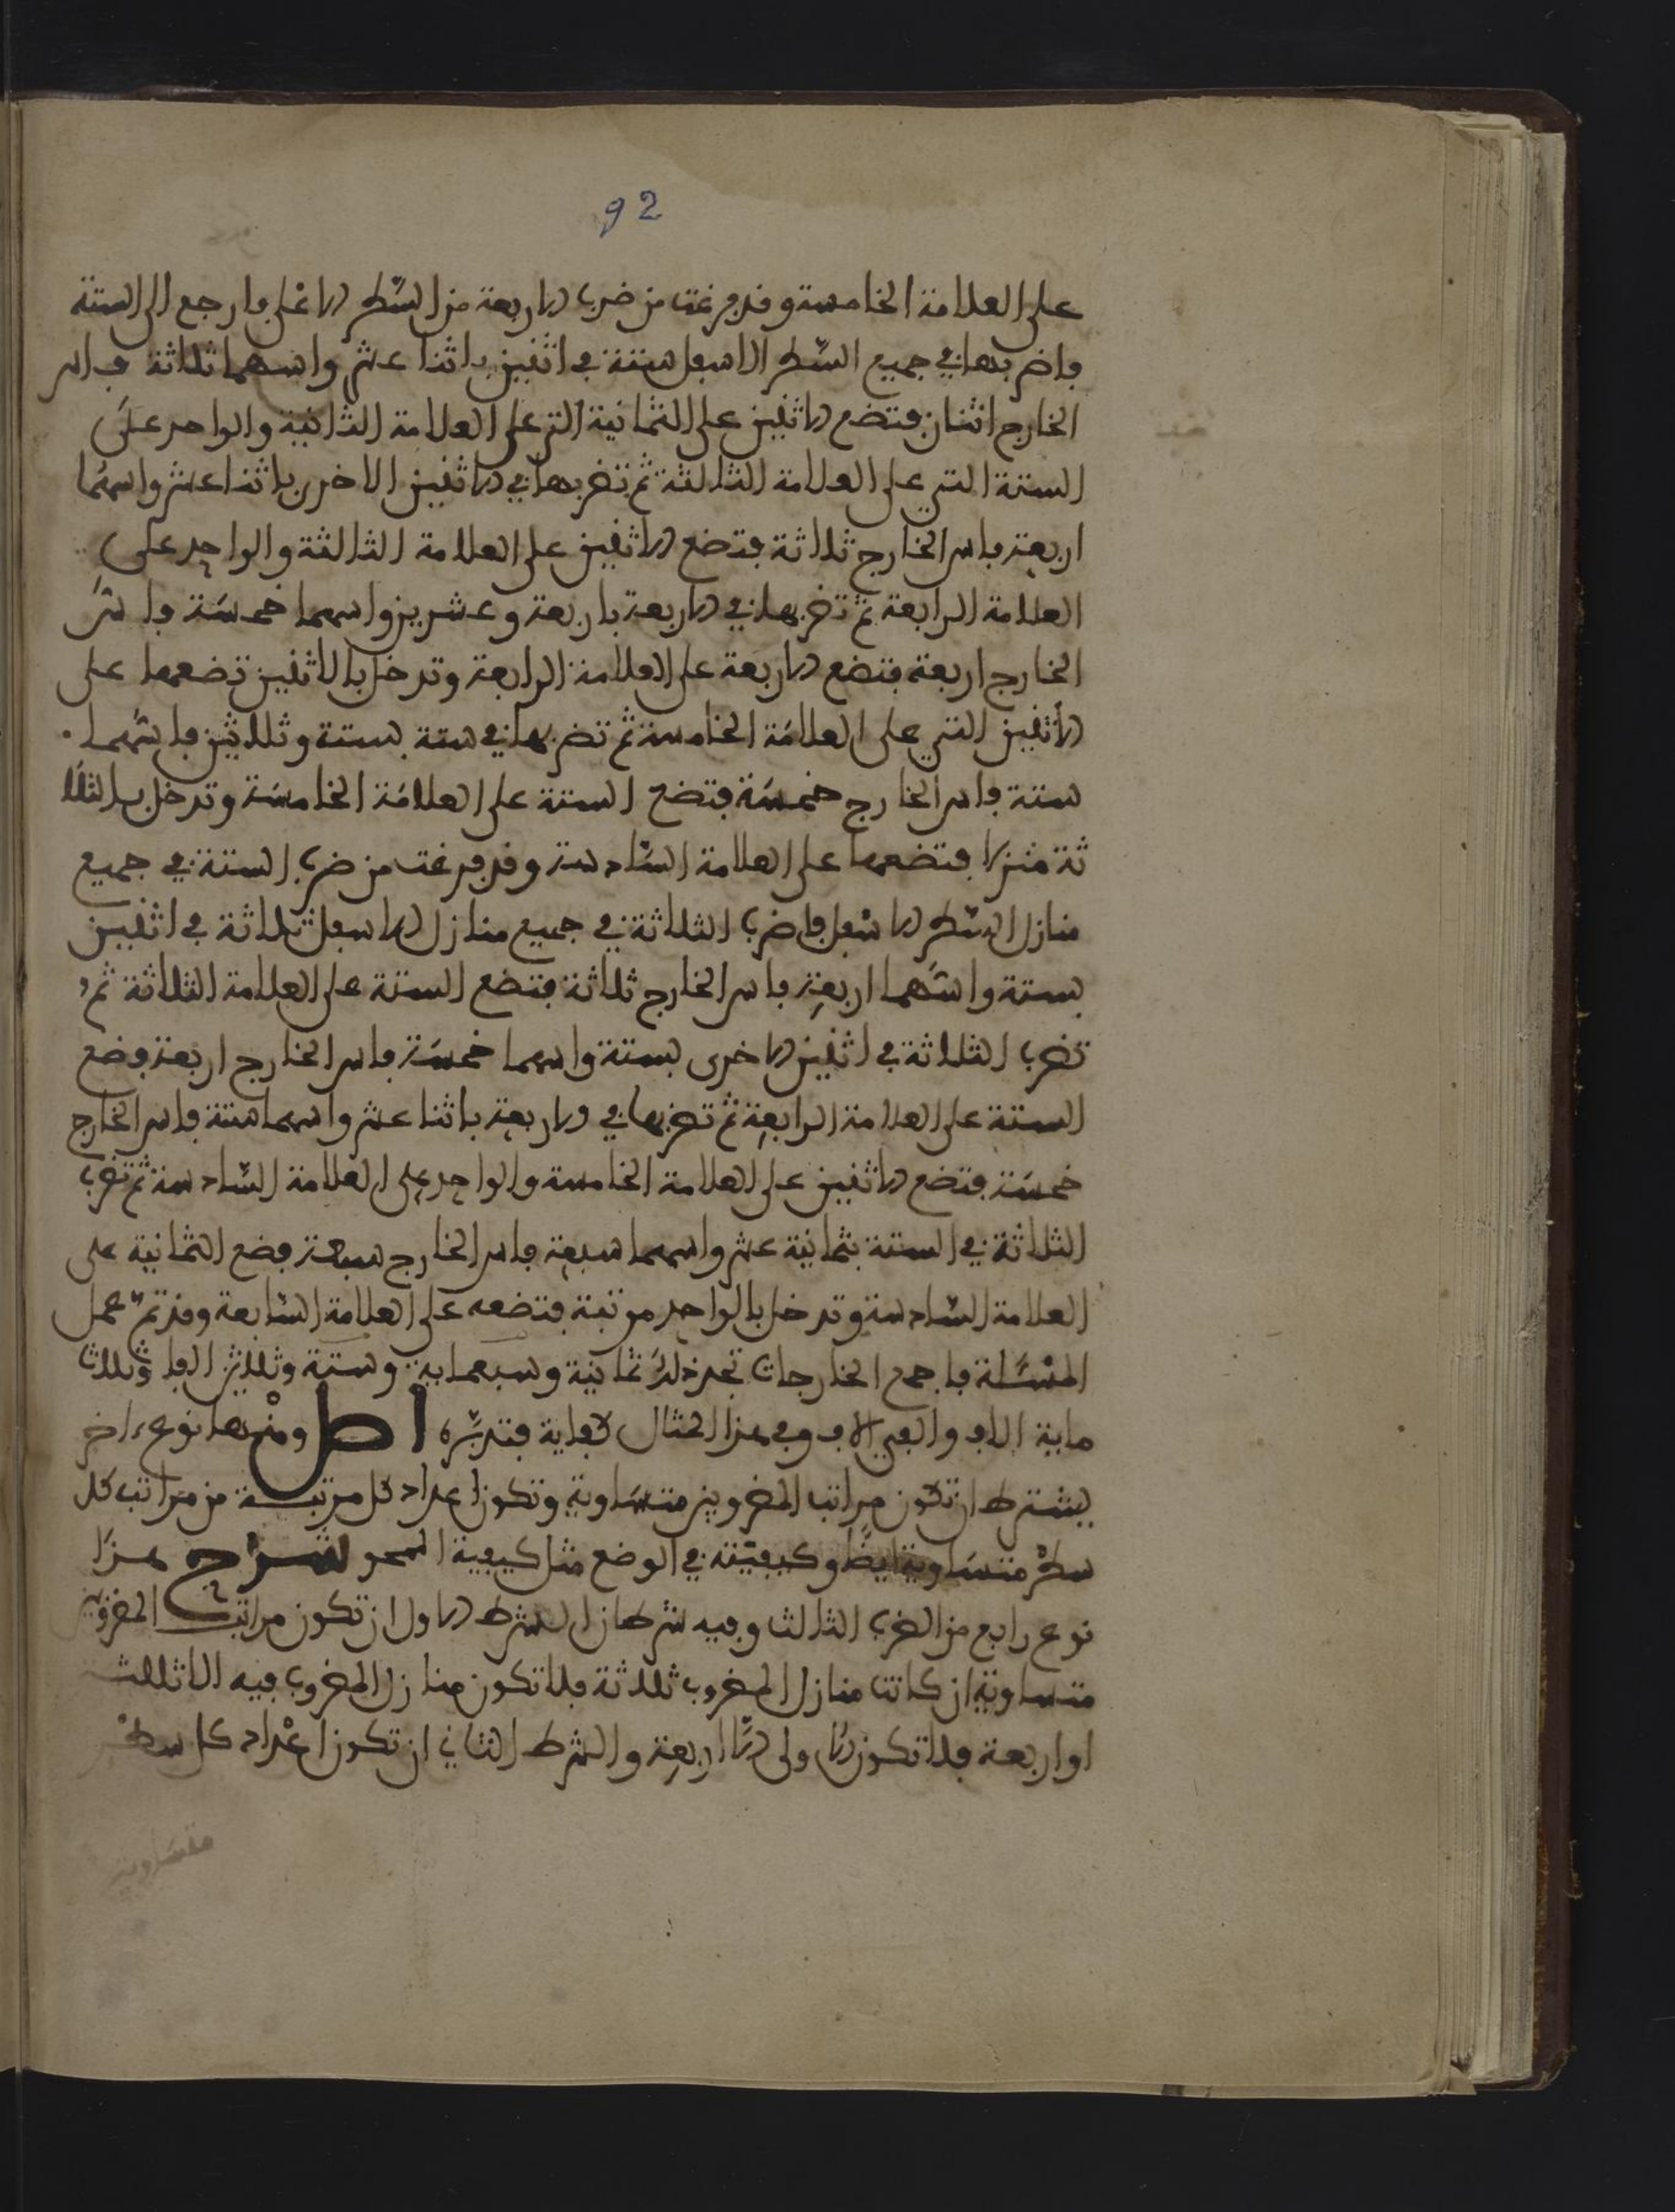 92
على العلامة الخامسة وقد فرغت من ضرب الاربعة من السطر الاعلى فارجع الى الستة
فاضربها في جميع السطر الاسفل ستة في اثنين باثنا عشر واسهما ثلاثة فاس
الخارج اثنان فتضع الاثنين على الثمانية التي على العلامة الثانية والواحد على
الستة التي على العلامة الثالثة ثم تضربها في الاثنين الاخرى باثنا عشر واسهما
اربعة فاس الخارج ثلاثة فتضع الاثنين على العلامة الثالثة والواحد على
العلامة الرابعة ثم تضربها في الاربعة باربعة وعشرين واسهما خمسة فاس
الخارج اربعة فتضع الاربعة على العلامة الرابعة وتدخل بالاثنين تضعها على
الاثنين التي على العلامة الخامسة ثم تضربها في ستة بستة وثلاثين فاسهما
ستة فاس الخارج خمسة فتضع الستة على العلامة الخامسة وتدخل بالثلا
ثة منزلا فتضعها على العلامة السادسة وقد فرغت من ضرب الستة في جميع
منازل السطر الاسفل فاضرب الثلاثة في جميع منازل الاسفل ثلاثة في اثنين
بستة واسهما اربعة فاس الخارج ثلاثة فتضع الستة على العلامة الثلاثة ثم
تضرب الثلاثة في اثنين الاخرى بستة واسهما خمسة فاس الخارج اربعة فضع
الستة على العلامة الرابعة ثم تضربها في الاربعة باثنا عشر واسهما ستة فاس الخارج
خمسة فتضع الاثنين على العلامة الخامسة والواحد على العلامة السادسة ثم تضرب
الثلاثة في الستة بثمانية عشر واسهما سبعة فاس الخارج سبعة فضع الثمانية على
العلامة السادسة وتدخل بالواحد مرتبة فتضعه على العلامة السابعة وقد تم عمل
المسئلة فاجمع الخارجات تجد ذلك ثمانية وسبعماية وستة وثلاثين الفا وثلاث
ماية الاف والفي الاف وفي هذا المثال كفاية فتدبره اصل ومنها نوع اخر
يشترط ان تكون مراتب المضروبين متساوية وتكون اعداد كل مرتبة من مراتب كل
سطر متساوية ايضا وكيفيته في الوضع مثل كيفية المحو شرح هذا
نوع رابع من الضرب الثالث وفيه شرطان الشرط الاول ان تكون مراتب المضروبين
متساوية ان كانت منازل المضروب ثلاثة فلا تكون منازل المضروب فيه الا ثلاث
او اربعة فلا تكون الاولى الا اربعة والشرط الثاني ان تكون اعداد كل سطر
متساوية